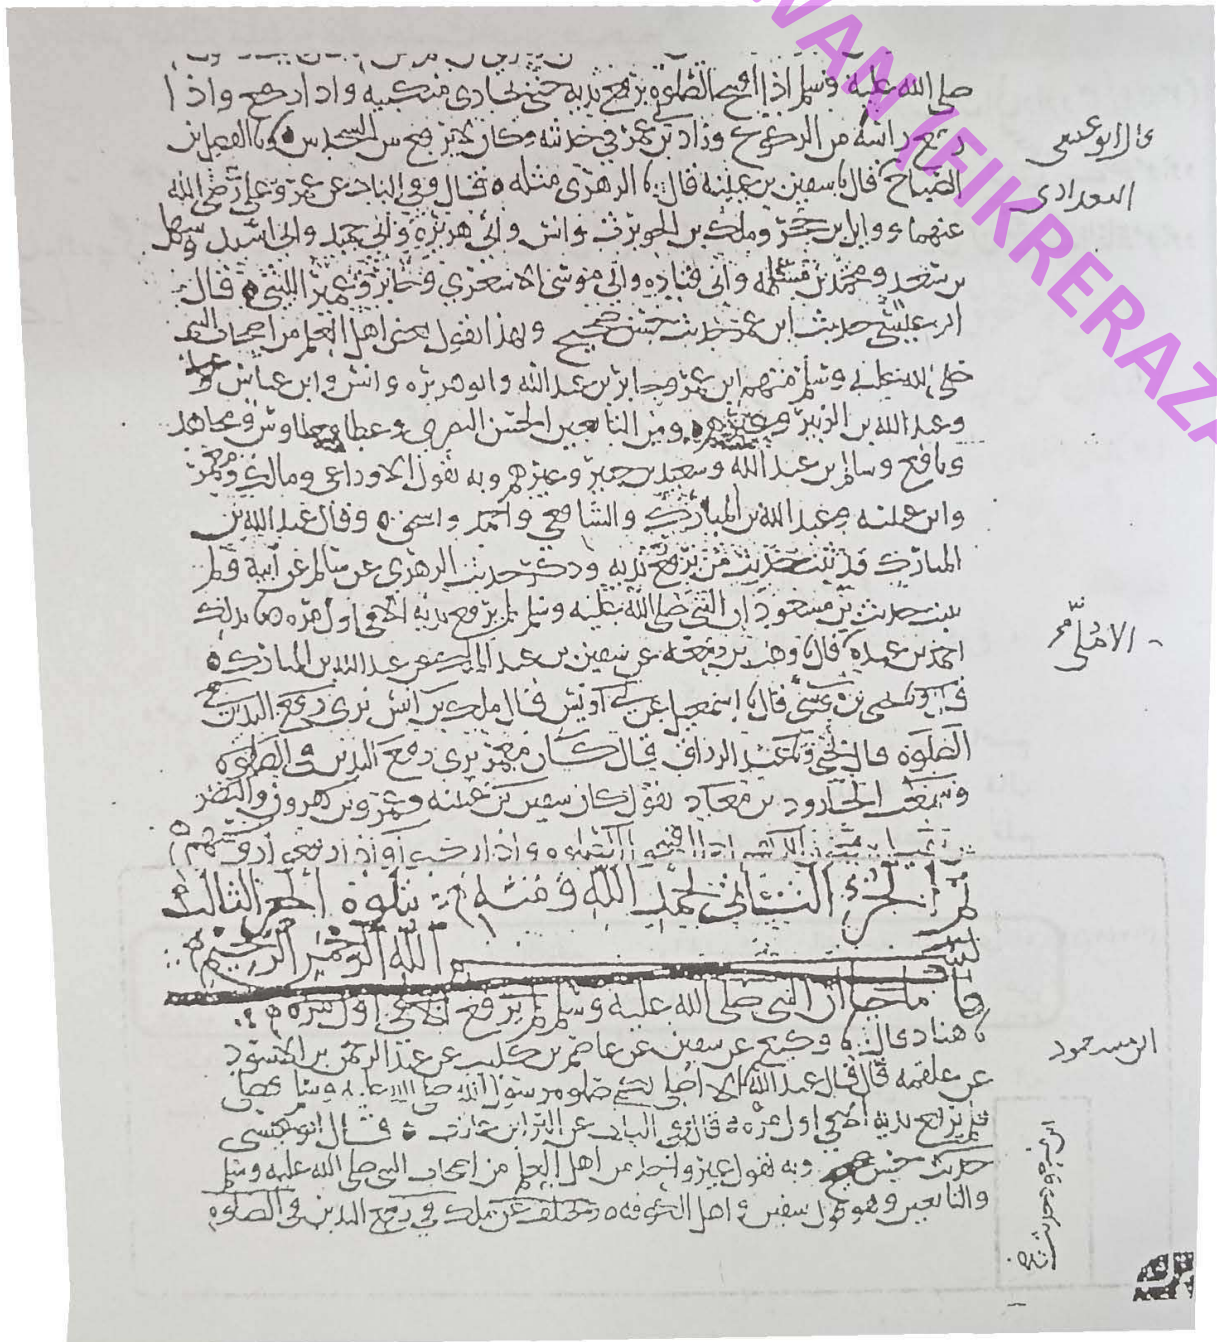 صلى الله عليه وسلم اذا افتتح الصلوة يرفع يديه حتى يحادى منكبيه واذا ركع واذا
رفع راسه من الركوع وزاد بن عمر في حديثه وكان لا يرفع بين السجدتين نا الفضل بن
قال ابو عيسى
الصباح قال نا سفين بن عيينه قال نا الزهرى مثله قال وفي الباب عن عمر وعلي رضي الله
البغدادى
عنهما ووايل بن حجر وملك بن الحويرث وانس وابي هريرة وابي حميد وابي اسيد وسهل
بن سعد ومحمد بن مسلمه وابي قتاده وابي موسى الاشعري وجابر وعمير الليثي قال
ابو عيسى حديث ابن عمر حديث حسن صحيح وبهذا يقول بعض اهل العلم من اصحاب النبي
صلى الله عليه وسلم منهم ابن عمر وجابر بن عبد الله وابو هريره وانس وابن عباس
وعبد الله بن الزبير وغيرهم ومن التابعين الحسن البصري وعطا وطاوس ومجاهد
ونافع وسالم بن عبد الله وسعيد بن جبير وغيرهم وبه يقول الاوزاعي ومالك ومعمر
وابن عيينه وعبد الله بن المبارك والشافعي واحمد واسحق وقال عبد الله بن
المبارك قد ثبت حديث من يرفع يديه وذكر حديث الزهري عن سالم عن ابيه ولم
يثبت حديث بن مسعود ان النبي صلى الله عليه وسلم لم يرفع يديه الا في اول مره نا بذلك
الاملي
احمد بن عبده قال نا وهب بن زمعه عن سفين بن عبد الملك عن عبد الله بن المبارك
يحيى بن موسى قال نا اسمعيل بن ابي اويس قال ملك بن انس يرى رفع اليدين في
الصلوة قال يحيى ونا عبد الرزاق قال كان معمر يرى رفع اليدين في الصلوة
وسمعت الجارود بن معاذ يقول كان سفين بن عيينه وعمر بن هرون والنضر
بن شميل يرفعون ايديهم اذا افتتحوا الصلوة واذا ركعوا واذا رفعوا روسهم
تم الجزء الثاني بحمد الله ومنه يتلوه الجزء الثالث
بسم الله الرحمن الرحيم
باب ما جا ان النبي صلى الله عليه وسلم لم يرفع الا في اول مره
نا هناد قال نا وكيع عن سفين عن عاصم بن كليب عن عبد الرحمن بن الاسود
عن علقمه قال قال عبد الله الا اصلي بكم صلوه رسول الله صلى الله عليه وسلم فصلى
ابن مسعود
فلم يرفع يديه الا في اول مرة قال وفي الباب عن البرا بن عازب قال ابو عيسى
حديث حسن وبه يقول غير واحد من اهل العلم من اصحاب النبي صلى الله عليه وسلم
والتابعين وهو قول سفين و اهل الكوفه